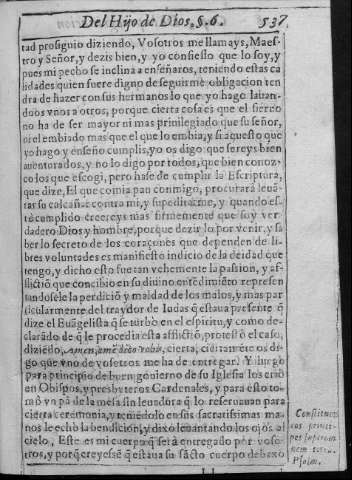 Del Hijo de Dios, §. 6. 537
tad prosiguio diziendo, Vosotros me llamays, Maes-
tro y Señor, y dezis bien, y yo confiesso que lo soy, y
pues mi pecho se inclina a enseñaros, teniendo estas ca
lidades quien fuere digno de seguirme obligacion ten
dra de hazer con sus hermanos lo que yo hago lauan-
doos vnos a otros, porque cierta cosa es que el sieruo
no ha de ser mayor ni mas priuilegiado que su señor,
ni el embiado mas que el que lo embia, y si aquesto que
yo hago y enseño cumplis, yo os digo que sereys bien
auenturados, y no lo digo por todos, que bien conoz-
co los que escogi, pero hase de cumplir la Escriptura,
que dize, El que comia pan conmigo, procurará leuã-
tar su calcañar contra mi, y supeditarme, y quando es-
té cumplido creereys mas firmemente que soy ver-
dadero Dios y hombre, porque dezir lo por venir, y sa
ber lo secreto de los coraçones que dependen de li-
bres voluntades es manifiesto indicio de la deidad que
tengo, y dicho esto fue tan vehemente la passion, y af-
flictiõ que concibio en su diuino entẽdimiẽto represen
tandosele la perdiciõ y maldad de los malos, y mas par
ticularmente del traydor de Iudas q̃ estaua presente q̃
dize el Euãgelista q̃ se turbò en el espiritu, y como de-
clarãdo de q̃ le procedia esta afflictiõ, protestò el caso,
diziẽdo, Amen, amẽ dico vobis, cierta, certiramẽte os di-
go que vno de vosotros me ha de entregar. Y luego
para principio de buen gouierno de su Iglesia los criò
en Obispos, y presbyteros Cardenales, y para esto to-
mò vn pã de la mesa sin leuadura q̃ lo reseruauan para
cierta ceremonia, y teniẽdolo en sus sacratissimas ma-
nos le echò la bendiciõn, y dixo leuantando los ojos al
cielo, Este es mi cuerpo q̃ será entregado por voso-
tros, y porq̃ creyesse q̃ estaua su sãcto cuerpo debaxo
Constitues
eos princi-
pes super om
nem terrã.
Psalm.
Ll